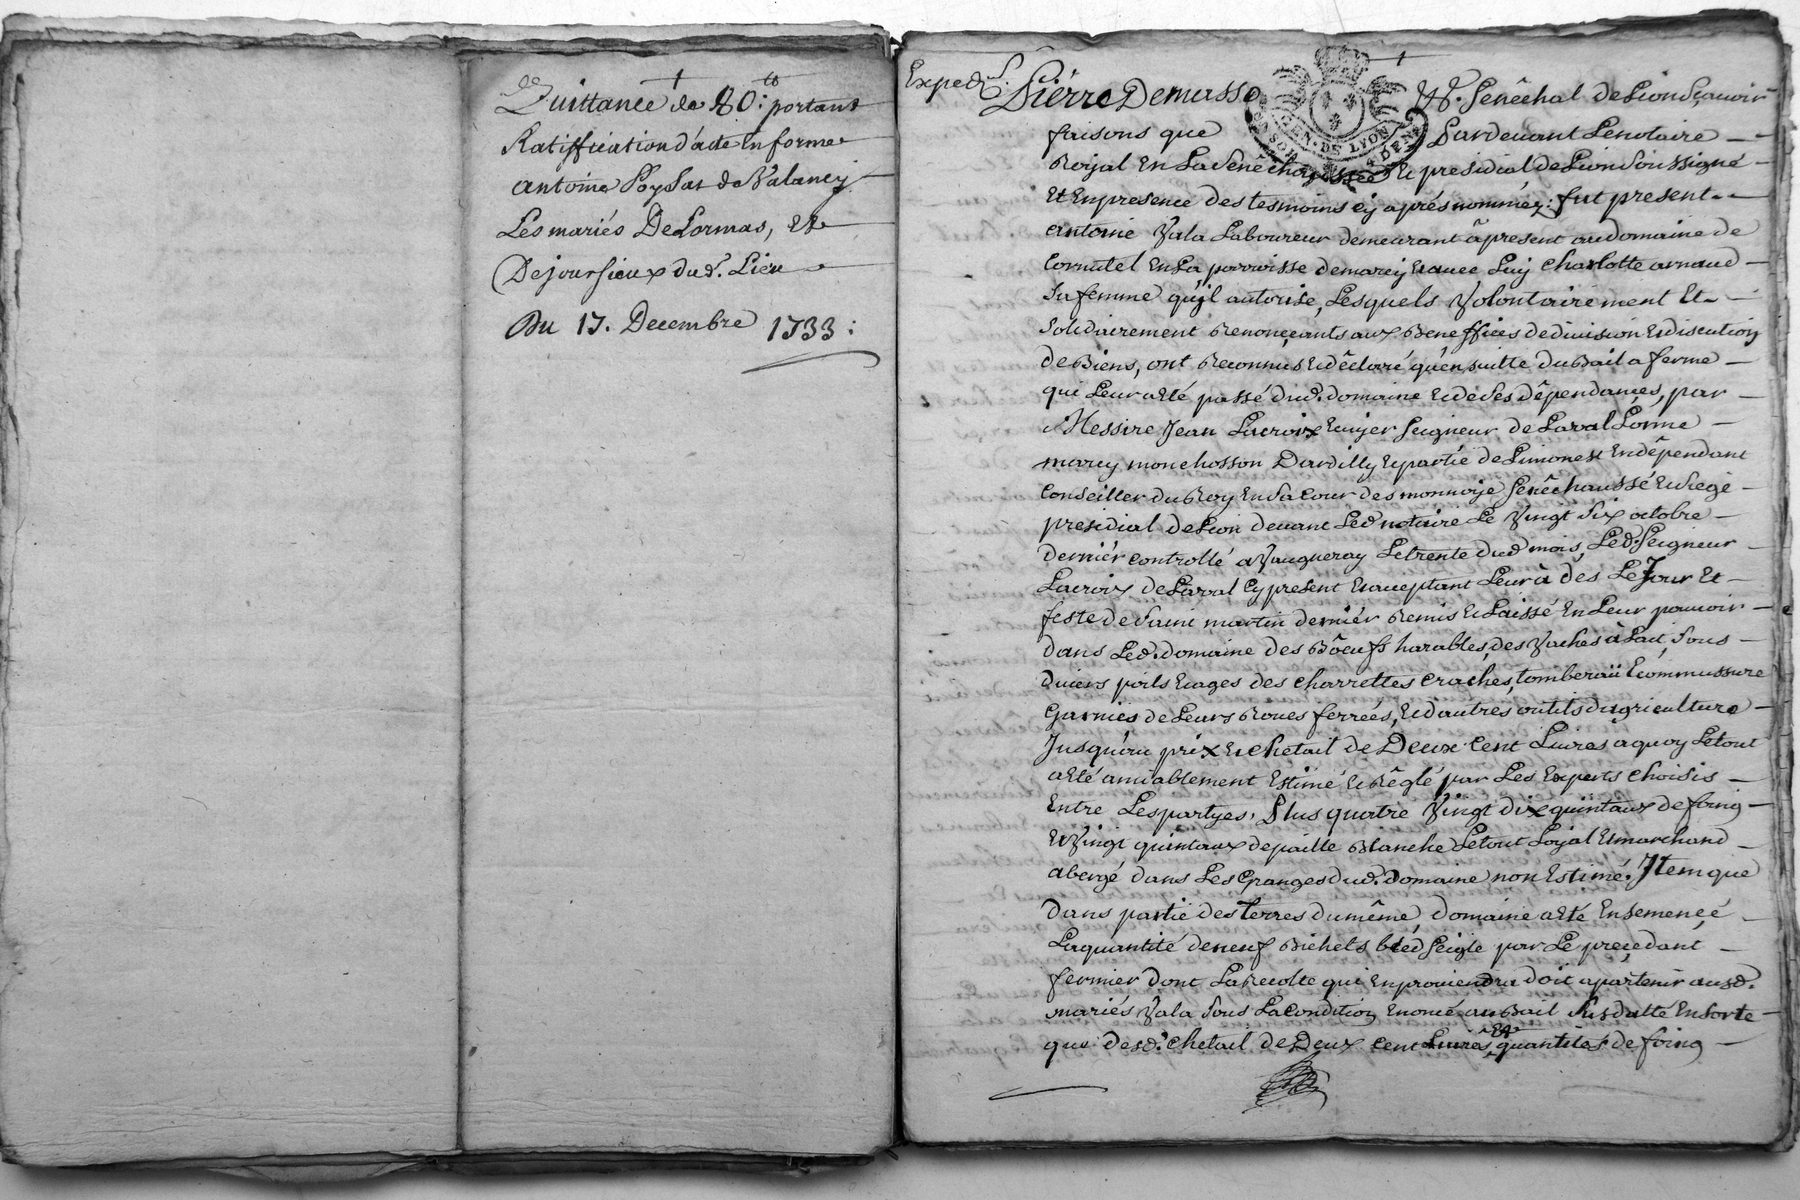 Quittance de 80:tt portant
Ratiffication d'acte En forme
antoine Poysat de Valancy
Les mariés DeLormas, Et
Dejoursieux dud. Lieu
Du 17. Decembre 1733:
Exped.
Pierre Demasso
Sénéchal de Lion Sçavoir
faisons que Pardevant Le notaire
GEN. DE LYON
Royal En La Sénéchaussée Et presidial de Lion Soussigné
Et En presence des tesmoins cy aprés nommés: fut present
antoine Vala Laboureur demeurant à present au domaine de
Cornutel En La parroisse de marcy Et avec Luy Charlotte arnaud
Sa femme qu'jl autorise, Lesquels Volontairement Et
Solidairement Renonçants aux Beneffices de division Et discution
de Biens, ont Reconnus Et déclaré qu'en suitte du Bail a ferme
qui Leur a Eté passé dud. domaine Et de Ses dépendances, par
Messire Jean Lacroix Ecuyer Seigneur de Laval Lorme
marcy monchosson Dardilly Et partie de Limonest En dépendant
Conseiller du Roy En Sa Cour des monnoye Sénéchaussé Et Siege
presidial de Lion devant Led notaire Le Vingt Six octobre
dernier controllé a Vaugneray Le trente dud mois, Led. Seigneur
Lacroix de Laval Cy present Et acceptant Leur à dés Le Jour Et
feste de Saint martin dernier Remis Et Laissé En Leur pouvoir
dans Led. domaine des Bôeufs harables, des Vaches à Lait, Sous
divers poils Et ages des charrettes Craches, tomberaü Et commussure
Garnies de Leurs Roues ferrées, Et d'autres outils d'agriculture
Jusqu'au prix Et chetail de Deux Cent Livres a quoy Le tout
a Eté amiablement Estimé Et Réglé par Les Experts choisis
Entre Les partyes, Plus quatre Vingt dix quintaux de foing
Et Vingt quintaux de paille Blanche Le tout Loyal Et marchand
abergé dans Les Granges dud. Domaine non Estimé. Jtem que
dans partie des Terres du même, domaine a Eté Ensemencé
La quantité de neuf Bichets bled Seigle par Le precedant
fermier dont La Recolte qui En proviendra doit apartenir ausd.
mariés Vala Sous La Condition Enoncé au Bail Susdatté En sorte
que desd. chetail de Deux Cent Livres Et quantités de foing